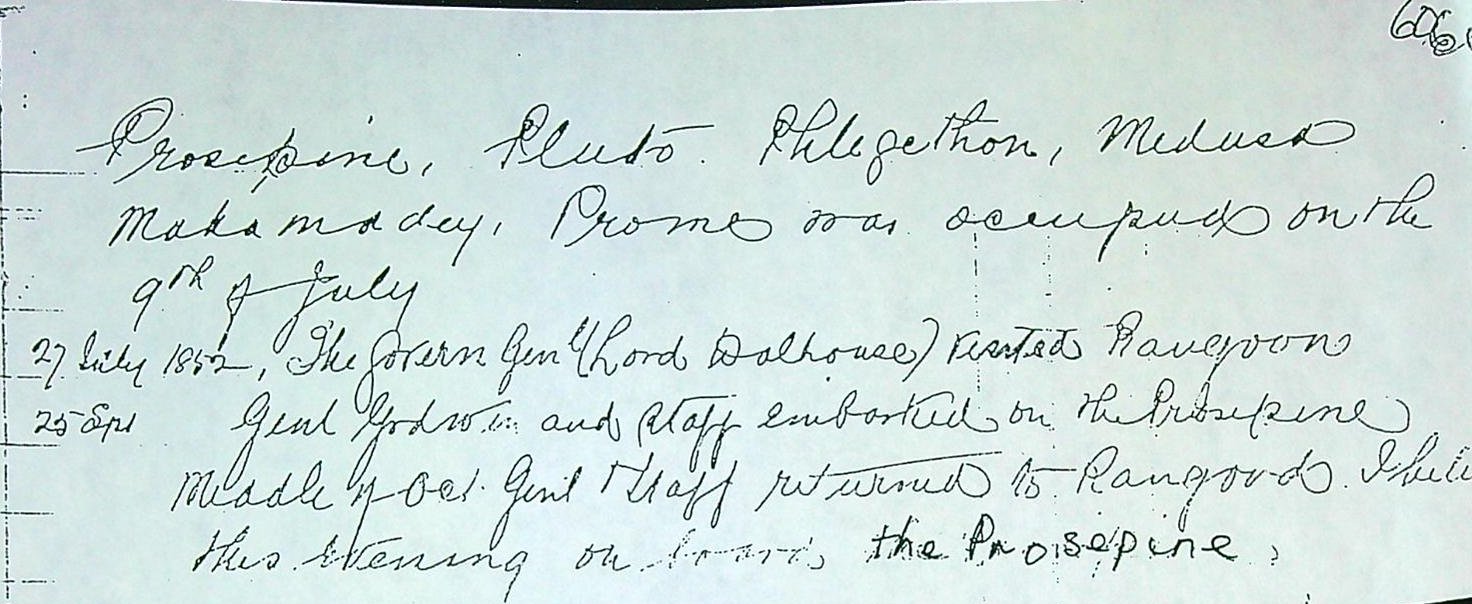 606
Prosepine, Pluto. Phlegethon, Medusa
Mahamadey. Prome was occupied on the
9th of July
27 July 1852, The Govern Genl (Lord Dalhouse) visited Rangoon
25 Sept Genl Godwin and Staff embarked on the Prosepine
Middle of Oct. Genl & Staff returned to Rangood. I
this evening on board the Prosepine,